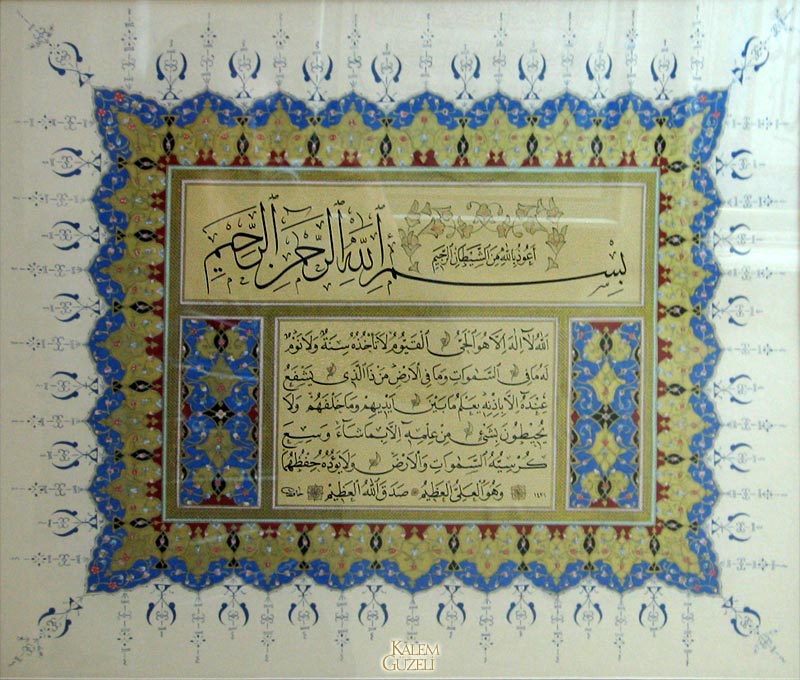 أَعُوذُ بِاللهِ مِنَ الشَّيْطَانِ الرَّجِيمِ
بِسْمِ اللهِ الرَّحْمٰنِ الرَّحِيمِ
اَللهُ لَا اِلٰهَ اِلَّا هُوَ الْحَىُّ الْقَيُّومُ لَا تَأْخُذُهُ سِنَةٌ وَلَا نَوْمٌ
لَهُ مَا فِى السَّمٰوَاتِ وَمَا فِى الْاَرْضِ مَنْ ذَا الَّذِى يَشْفَعُ
عِنْدَهُ اِلَّا بِاِذْنِهِ يَعْلَمُ مَا بَيْنَ اَيْدِيهِمْ وَمَا خَلْفَهُمْ وَلَا
يُحِيطُونَ بِشَىْءٍ مِنْ عِلْمِهِ اِلَّا بِمَا شَاءَ وَسِعَ
كُرْسِيُّهُ السَّمٰوَاتِ وَالْاَرْضَ وَلَا يَؤُدُهُ حِفْظُهُمَا
وَهُوَ الْعَلِىُّ الْعَظِيمُ صَدَقَ اللهُ الْعَظِيمُ
١٤٢١
KALEM GÜZELİ